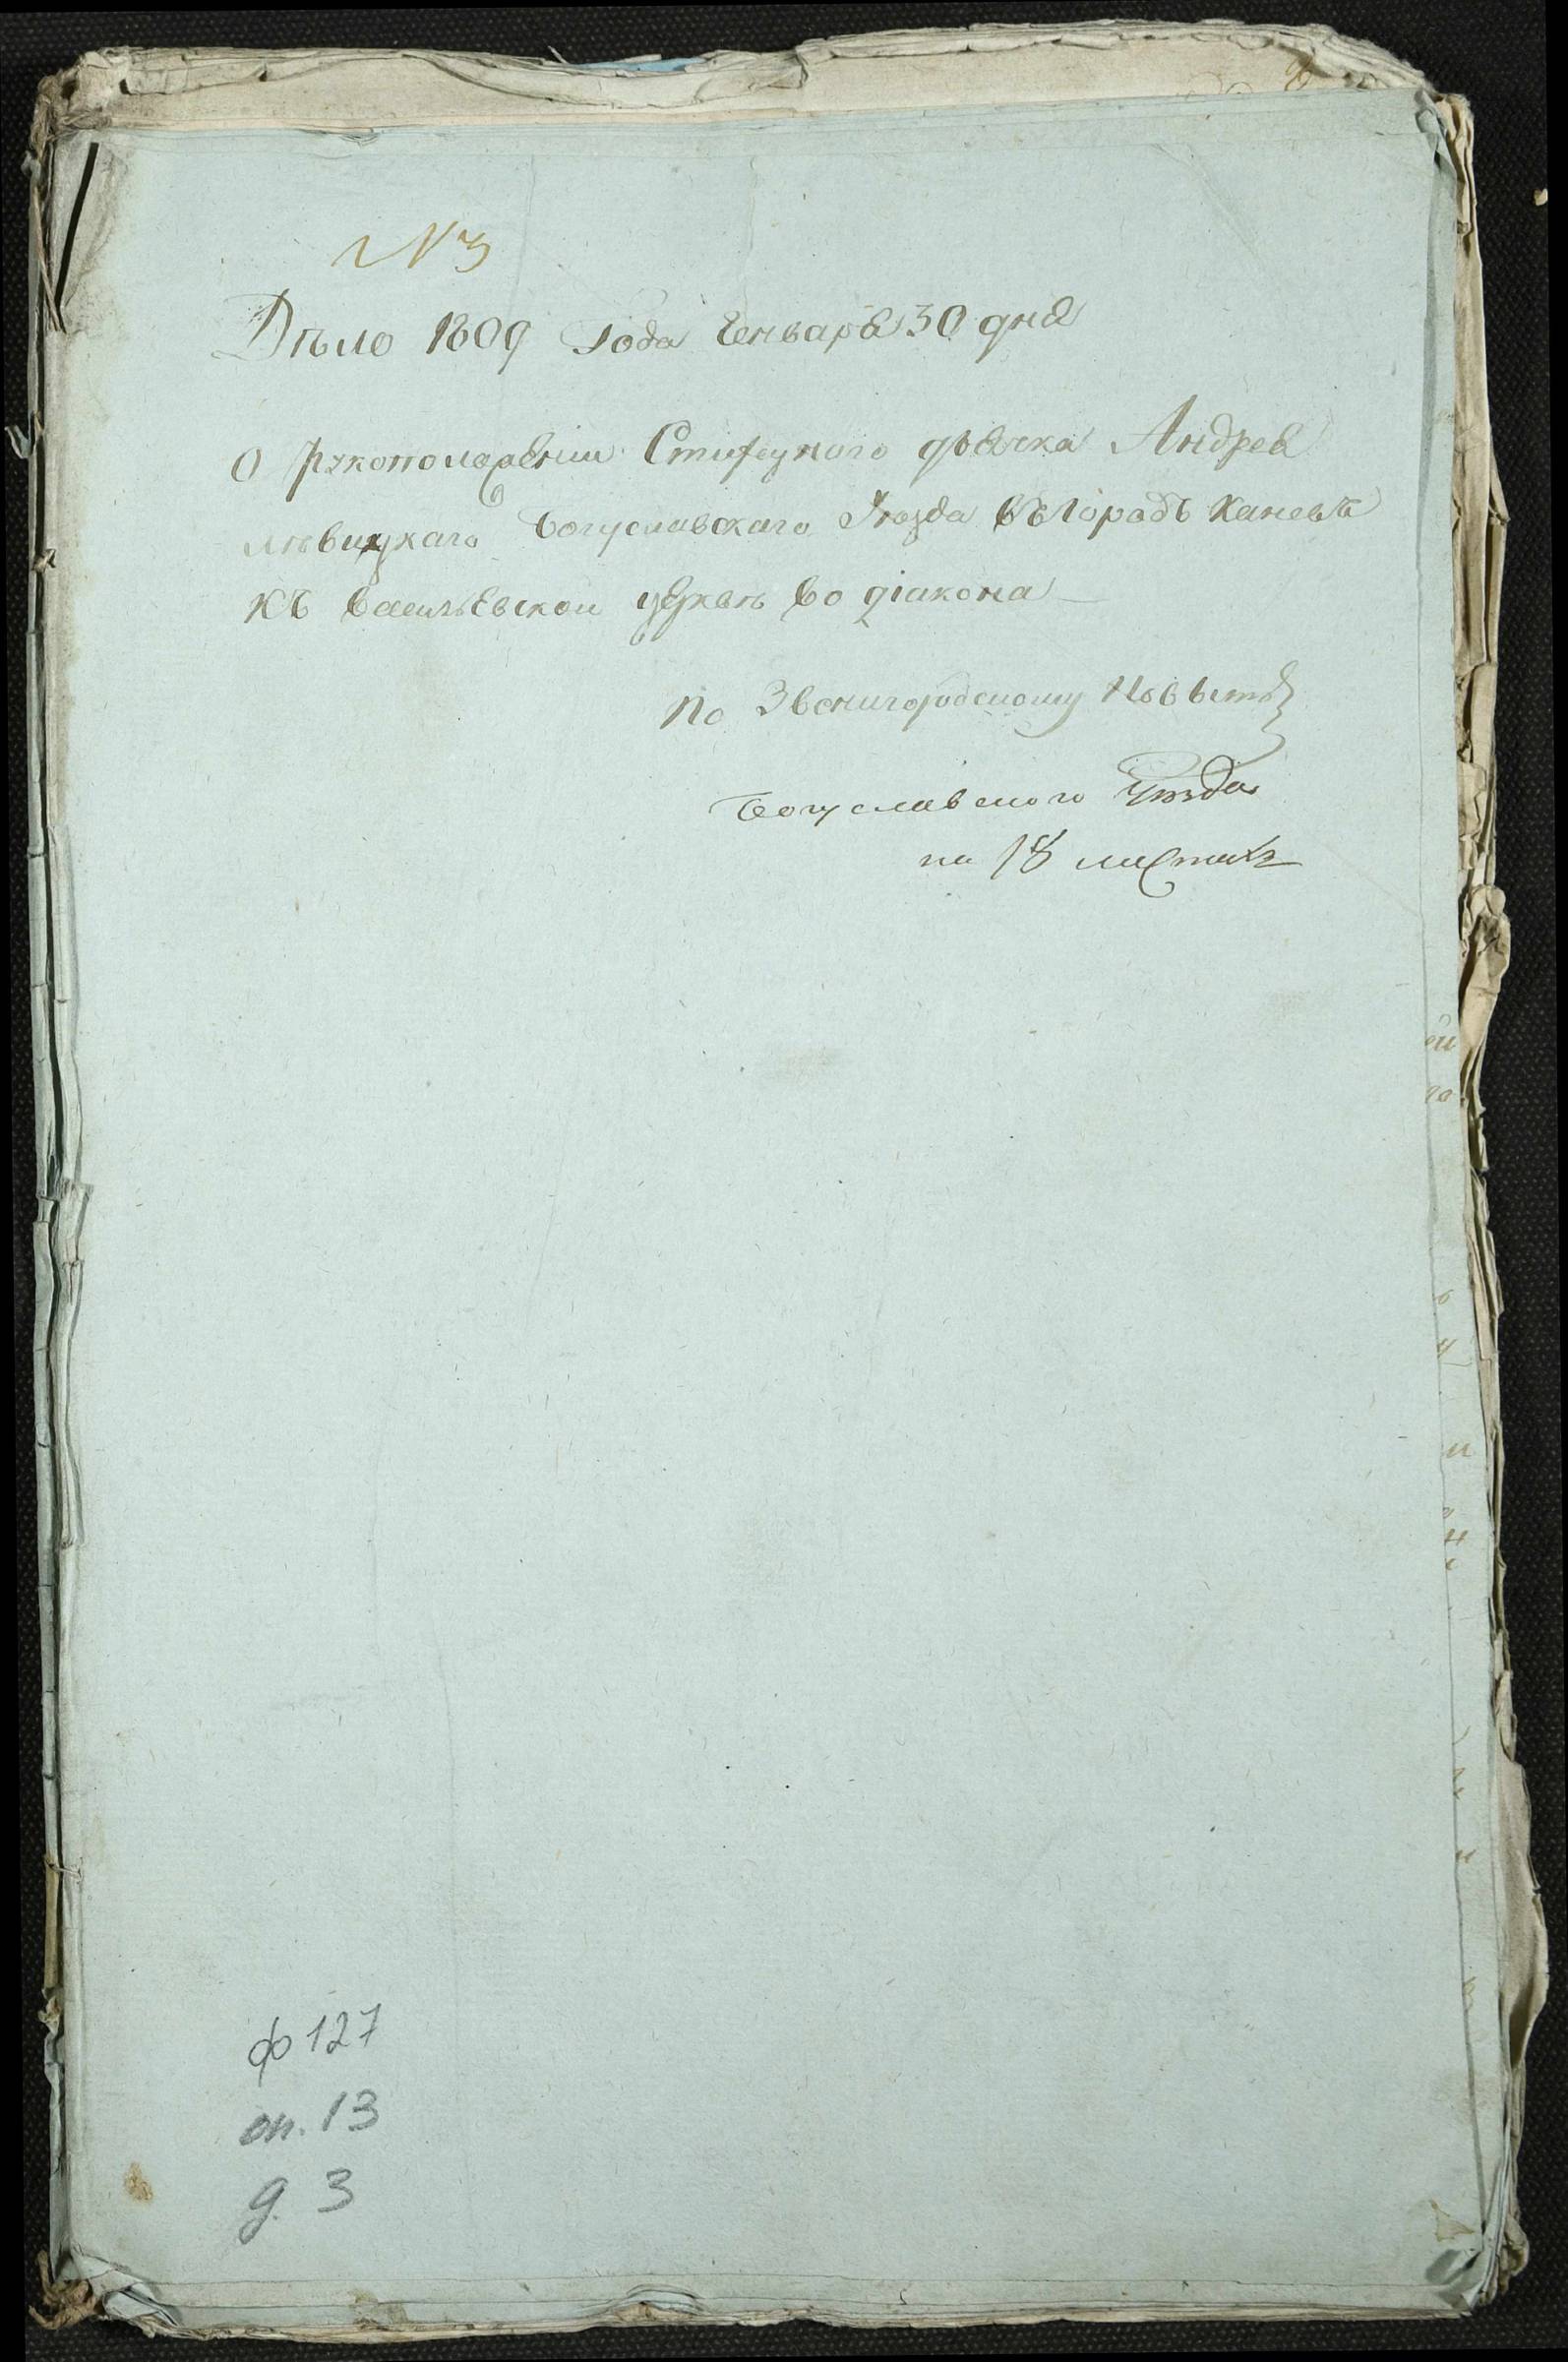 № 3
Дѣло 1809 года Генваря 30 дня
О рукоположеніи Стихарнаго дьячка Андрея
Левицкаго Богуславскаго Уѣзда въ городъ Каневъ
къ Васильевской церквѣ во діакона
По Звенигородскому Повыт.
Богуславского Уѣзда
на 18 листахъ
ф 127
оп. 13
д. 3